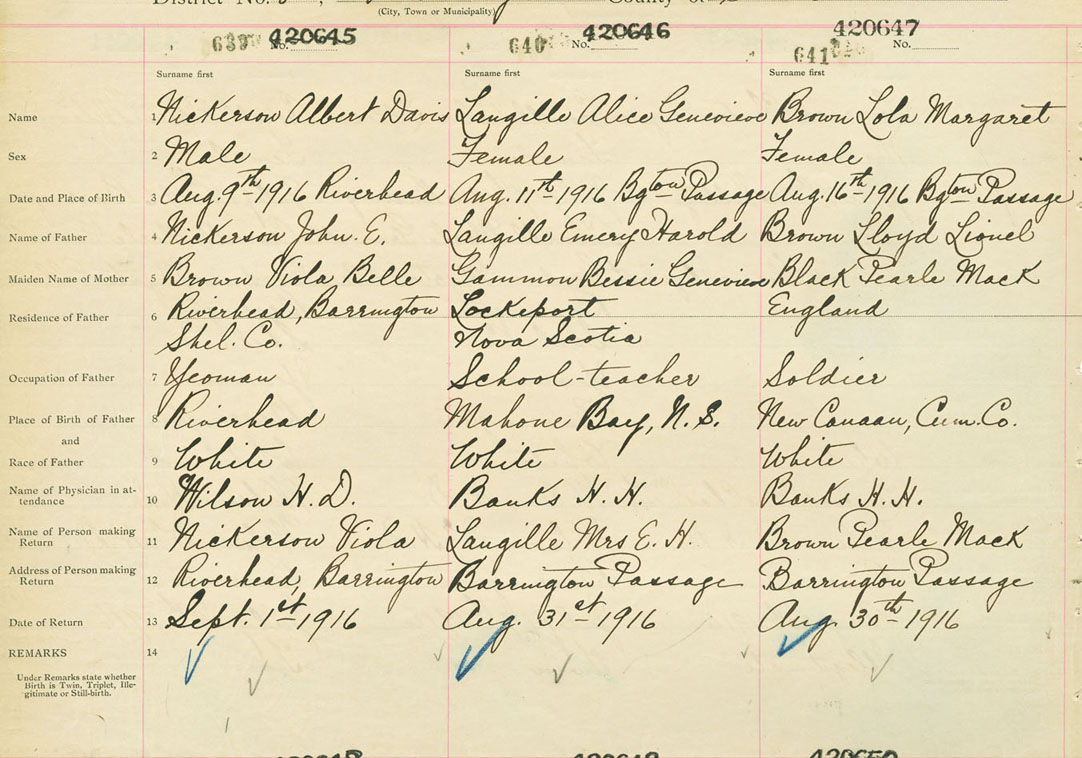 District No.
(City, Town or Municipality)
County of
639 No. 420645
640 No. 420646
641 No. 420647
Surname first
Surname first
Surname first
Name 1 Nickerson Albert Davis Langille Alice Genevieve Brown Lola Margaret
Sex 2 Male Female Female
Date and Place of Birth 3 Aug. 9th 1916 Riverhead Aug. 11th 1916 Bgton Passage Aug. 16th 1916 Bgton Passage
Name of Father 4 Nickerson John. E. Langille Emery Harold Brown Lloyd Lionel
Maiden Name of Mother 5 Brown Viola Belle Gammon Bessie Genevieve Black Pearle Mack
Residence of Father 6 Riverhead, Barrington Lockeport England
Shel. Co. Nova Scotia
Occupation of Father 7 Yeoman School-teacher Soldier
Place of Birth of Father 8 Riverhead Mahone Bay, N.S. New Canaan, Cum. Co.
and
Race of Father 9 White White White
Name of Physician in at-
tendance 10 Wilson H. D. Banks H. H. Banks H. H.
Name of Person making
Return 11 Nickerson Viola Langille Mrs E. H. Brown Pearle Mack
Address of Person making
Return 12 Riverhead, Barrington Barrington Passage Barrington Passage
Date of Return 13 Sept. 1st 1916 Aug. 31st 1916 Aug. 30th 1916
REMARKS 14
Under Remarks state whether
Birth is Twin, Triplet, Ille-
gitimate or Still-birth.